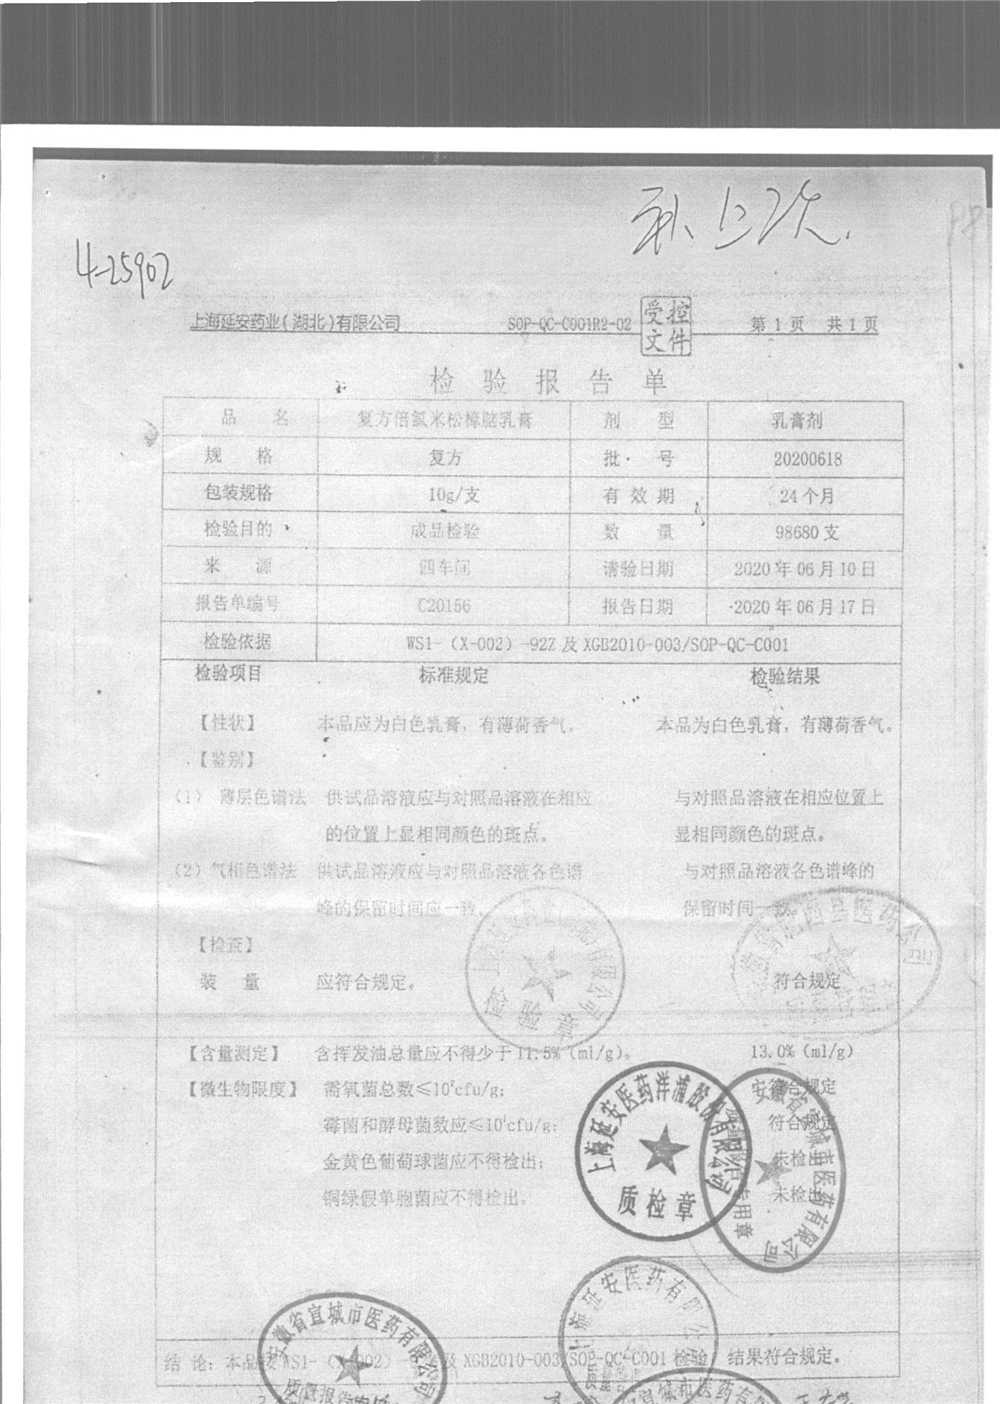 4-25902
上海延安药业(湖北)有限公司 SOP-QC-C001R2-02 受控文件 第 1 页 共 1 页
检 验 报 告 单
品 名 复方倍氯米松樟脑乳膏 剂 型 乳膏剂
规 格 复方 批 号 20200618
包装规格 10g/支 有 效 期 24 个月
检验目的 成品检验 数 量 98680 支
来 源 四车间 请验日期 2020 年 06 月 10 日
报告单编号 C20156 报告日期 2020 年 06 月 17 日
检验依据 WS1-（X-002）-92Z 及 XGB2010-003/SOP-QC-C001
检验项目 标准规定 检验结果
【性状】 本品应为白色乳膏，有薄荷香气。 本品为白色乳膏，有薄荷香气。
【鉴别】
（1） 薄层色谱法 供试品溶液应与对照品溶液在相应 与对照品溶液在相应位置上
的位置上显相同颜色的斑点。 显相同颜色的斑点。
（2）气相色谱法 供试品溶液应与对照品溶液各色谱 与对照品溶液各色谱峰的
峰的保留时间应一致。 保留时间一致。
【检查】
装 量 应符合规定。 符合规定
检验章
【含量测定】 含挥发油总量应不得少于 11.5%（ml/g）。 13.0%（ml/g）
【微生物限度】 需氧菌总数≤10²cfu/g; 符合规定
霉菌和酵母菌数应≤10¹cfu/g; 符合规定
金黄色葡萄球菌应不得检出; 未检出
铜绿假单胞菌应不得检出。 未检出
上海延安医药洋浦股份有限公司
质检章
安徽省宣城市医药有限公司
专用章
上海延安医药有限公司
安徽省宣城市医药有限公司
结 论：本品 WS1-（X-002）- 及 XGB2010-003/SOP-QC-C001 检验 结果符合规定。
质量报告
宣城市医药有